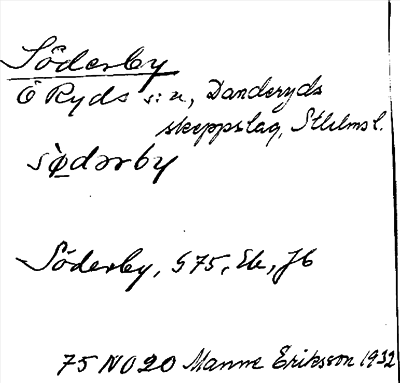 Söderby
Ö Ryds s:n, Danderyds
skeppslag, Sthlms l.
sø̀dərby
Söderby, S75, Eb, Jb
75 NO 20 Manne Eriksson 1932